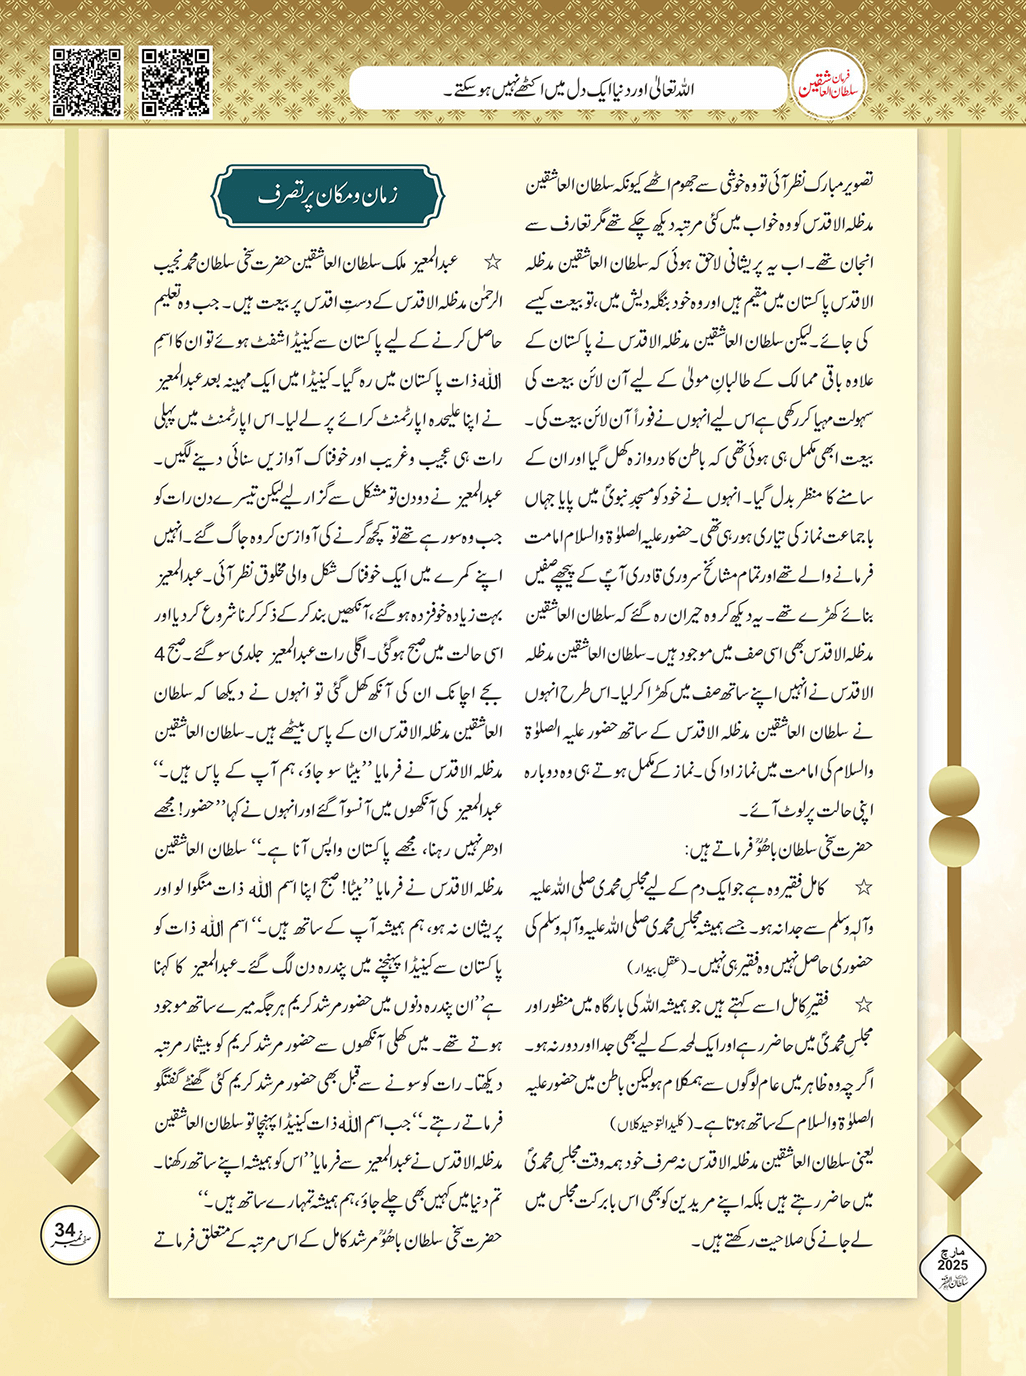 فرمان سلطان العاشقین
اللہ تعالیٰ اور دنیا ایک دل میں اکٹھے نہیں ہو سکتے۔
تصویر مبارک نظر آئی تو وہ خوشی سے جھوم اٹھے کیونکہ سلطان العاشقین
مدظلہ الاقدس کو وہ خواب میں کئی مرتبہ دیکھ چکے تھے مگر تعارف سے
انجان تھے۔ اب یہ پریشانی لاحق ہوئی کہ سلطان العاشقین مدظلہ
الاقدس پاکستان میں مقیم ہیں اور وہ خود بنگلہ دیش میں، تو بیعت کیسے
کی جائے۔ لیکن سلطان العاشقین مدظلہ الاقدس نے پاکستان کے
علاوہ باقی ممالک کے طالبانِ مولیٰ کے لیے آن لائن بیعت کی
سہولت مہیا کر رکھی ہے اس لیے انہوں نے فوراً آن لائن بیعت کی۔
بیعت ابھی مکمل ہی ہوئی تھی کہ باطن کا دروازہ کھل گیا اور ان کے
سامنے کا منظر بدل گیا۔ انہوں نے خود کو مسجدِ نبویؐ میں پایا جہاں
باجماعت نماز کی تیاری ہو رہی تھی۔ حضور علیہ الصلوٰۃ والسلام امامت
فرمانے والے تھے اور تمام مشائخ سروری قادری آپؐ کے پیچھے صفیں
بنائے کھڑے تھے۔ یہ دیکھ کر وہ حیران رہ گئے کہ سلطان العاشقین
مدظلہ الاقدس بھی اسی صف میں موجود ہیں۔ سلطان العاشقین مدظلہ
الاقدس نے انہیں اپنے ساتھ صف میں کھڑا کر لیا۔ اس طرح انہوں
نے سلطان العاشقین مدظلہ الاقدس کے ساتھ حضور علیہ الصلوٰۃ
والسلام کی امامت میں نماز ادا کی۔ نماز کے مکمل ہوتے ہی وہ دوبارہ
اپنی حالت پر لوٹ آئے۔
حضرت سخی سلطان باھُوؒ فرماتے ہیں:
☆ کامل فقیر وہ ہے جو ایک دم کے لیے مجلسِ محمدی صلی اللہ علیہ
وآلہٖ وسلم سے جدا نہ ہو۔ جسے ہمیشہ مجلسِ محمدی صلی اللہ علیہ وآلہٖ وسلم کی
حضوری حاصل نہیں وہ فقیر ہی نہیں۔ (عقلِ بیدار)
☆ فقیرِ کامل اسے کہتے ہیں جو ہمیشہ اللہ کی بارگاہ میں منظور اور
مجلسِ محمدیؐ میں حاضر رہے اور ایک لمحہ کے لیے بھی جدا اور دور نہ ہو۔
اگرچہ وہ ظاہر میں عام لوگوں سے ہمکلام ہو لیکن باطن میں حضور علیہ
الصلوٰۃ والسلام کے ساتھ ہوتا ہے۔ (کلید التوحید کلاں)
یعنی سلطان العاشقین مدظلہ الاقدس نہ صرف خود ہمہ وقت مجلسِ محمدیؐ
میں حاضر رہتے ہیں بلکہ اپنے مریدین کو بھی اس بابرکت مجلس میں
لے جانے کی صلاحیت رکھتے ہیں۔
زمان و مکان پر تصرف
☆ عبدالمعیز ملک سلطان العاشقین حضرت سخی سلطان محمد نجیب
الرحمٰن مدظلہ الاقدس کے دستِ اقدس پر بیعت ہیں۔ جب وہ تعلیم
حاصل کرنے کے لیے پاکستان سے کینیڈا شفٹ ہوئے تو ان کا اسمِ
اللہ ذات پاکستان میں رہ گیا۔ کینیڈا میں ایک مہینہ بعد عبدالمعیز
نے اپنا علیحدہ اپارٹمنٹ کرائے پر لے لیا۔ اس اپارٹمنٹ میں پہلی
رات ہی عجیب و غریب اور خوفناک آوازیں سنائی دینے لگیں۔
عبدالمعیز نے دو دن تو مشکل سے گزار لیے لیکن تیسرے دن رات کو
جب وہ سو رہے تھے تو کچھ گرنے کی آواز سن کر وہ جاگ گئے۔ انہیں
اپنے کمرے میں ایک خوفناک شکل والی مخلوق نظر آئی۔ عبدالمعیز
بہت زیادہ خوفزدہ ہو گئے، آنکھیں بند کر کے ذکر کرنا شروع کر دیا اور
اسی حالت میں صبح ہو گئی۔ اگلی رات عبدالمعیز جلدی سو گئے۔ صبح 4
بجے اچانک ان کی آنکھ کھل گئی تو انہوں نے دیکھا کہ سلطان
العاشقین مدظلہ الاقدس ان کے پاس بیٹھے ہیں۔ سلطان العاشقین
مدظلہ الاقدس نے فرمایا ’’بیٹا سو جاؤ، ہم آپ کے پاس ہیں۔‘‘
عبدالمعیز کی آنکھوں میں آنسو آ گئے اور انہوں نے کہا ’’حضور! مجھے
ادھر نہیں رہنا، مجھے پاکستان واپس آنا ہے۔‘‘ سلطان العاشقین
مدظلہ الاقدس نے فرمایا ’’بیٹا! صبح اپنا اسم اللہ ذات منگوا لو اور
پریشان نہ ہو، ہم ہمیشہ آپ کے ساتھ ہیں۔‘‘ اسم اللہ ذات کو
پاکستان سے کینیڈا پہنچنے میں پندرہ دن لگ گئے۔ عبدالمعیز کا کہنا
ہے ’’ان پندرہ دنوں میں حضور مرشد کریم ہر جگہ میرے ساتھ موجود
ہوتے تھے۔ میں کھلی آنکھوں سے حضور مرشد کریم کو بیشمار مرتبہ
دیکھتا۔ رات کو سونے سے قبل بھی حضور مرشد کریم کئی گھنٹے گفتگو
فرماتے رہتے۔‘‘ جب اسم اللہ ذات کینیڈا پہنچا تو سلطان العاشقین
مدظلہ الاقدس نے عبدالمعیز سے فرمایا ’’اس کو ہمیشہ اپنے ساتھ رکھنا۔
تم دنیا میں کہیں بھی چلے جاؤ، ہم ہمیشہ تمہارے ساتھ ہیں۔‘‘
حضرت سخی سلطان باھُوؒ مرشد کامل کے اس مرتبہ کے متعلق فرماتے
34
صفحہ نمبر
مارچ
2025